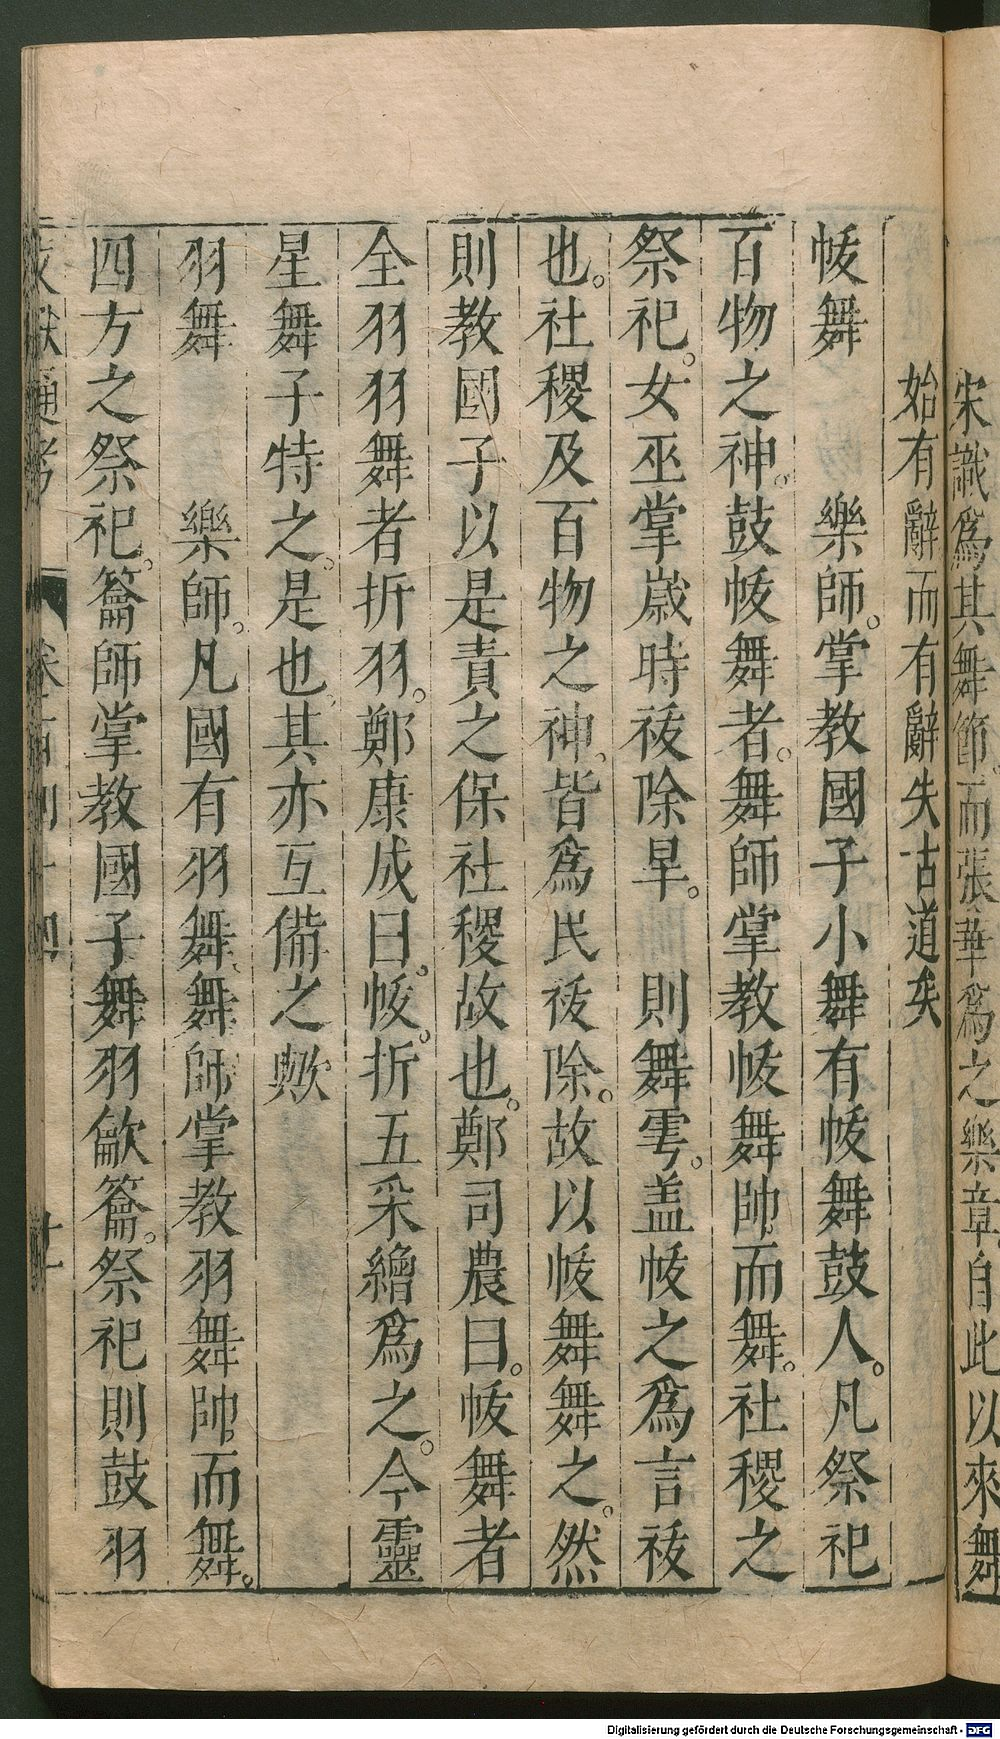 宋識爲其舞節而張華爲之樂章自此以來舞
始有辭而有辭失古道矣
帗舞　樂師。掌教國子小舞有帗舞鼓人。凡祭祀
百物之神。鼓帗舞者。舞師掌教帗舞帥。而舞。社稷之
祭祀。女巫掌歲時祓除旱。則舞雩。盖帗之爲言祓
也。社稷及百物之神。皆爲民祓除。故以帗舞舞之。然
則教國子以是責之保社稷故也。鄭司農曰。帗舞者
全羽羽舞者折羽。鄭康成曰。帗。折五采繒爲之。今靈
星舞子特之。是也其亦互備之歟
羽舞　樂師。凡國有羽舞舞師掌教羽舞帥。而舞。
四方之祭祀。籥師掌教國子舞羽龡籥。祭祀則鼓羽
文獻通考
Digitalisierung gefördert durch die Deutsche Forschungsgemeinschaft - DFG